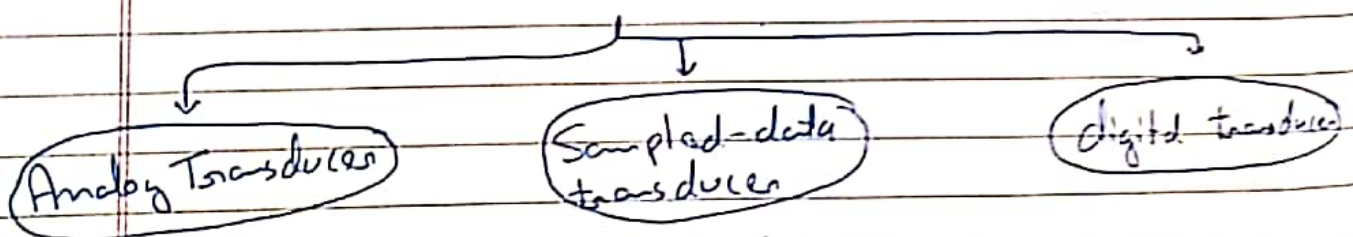 Analog Transducer
Sampled-data
transducer
digital transducer